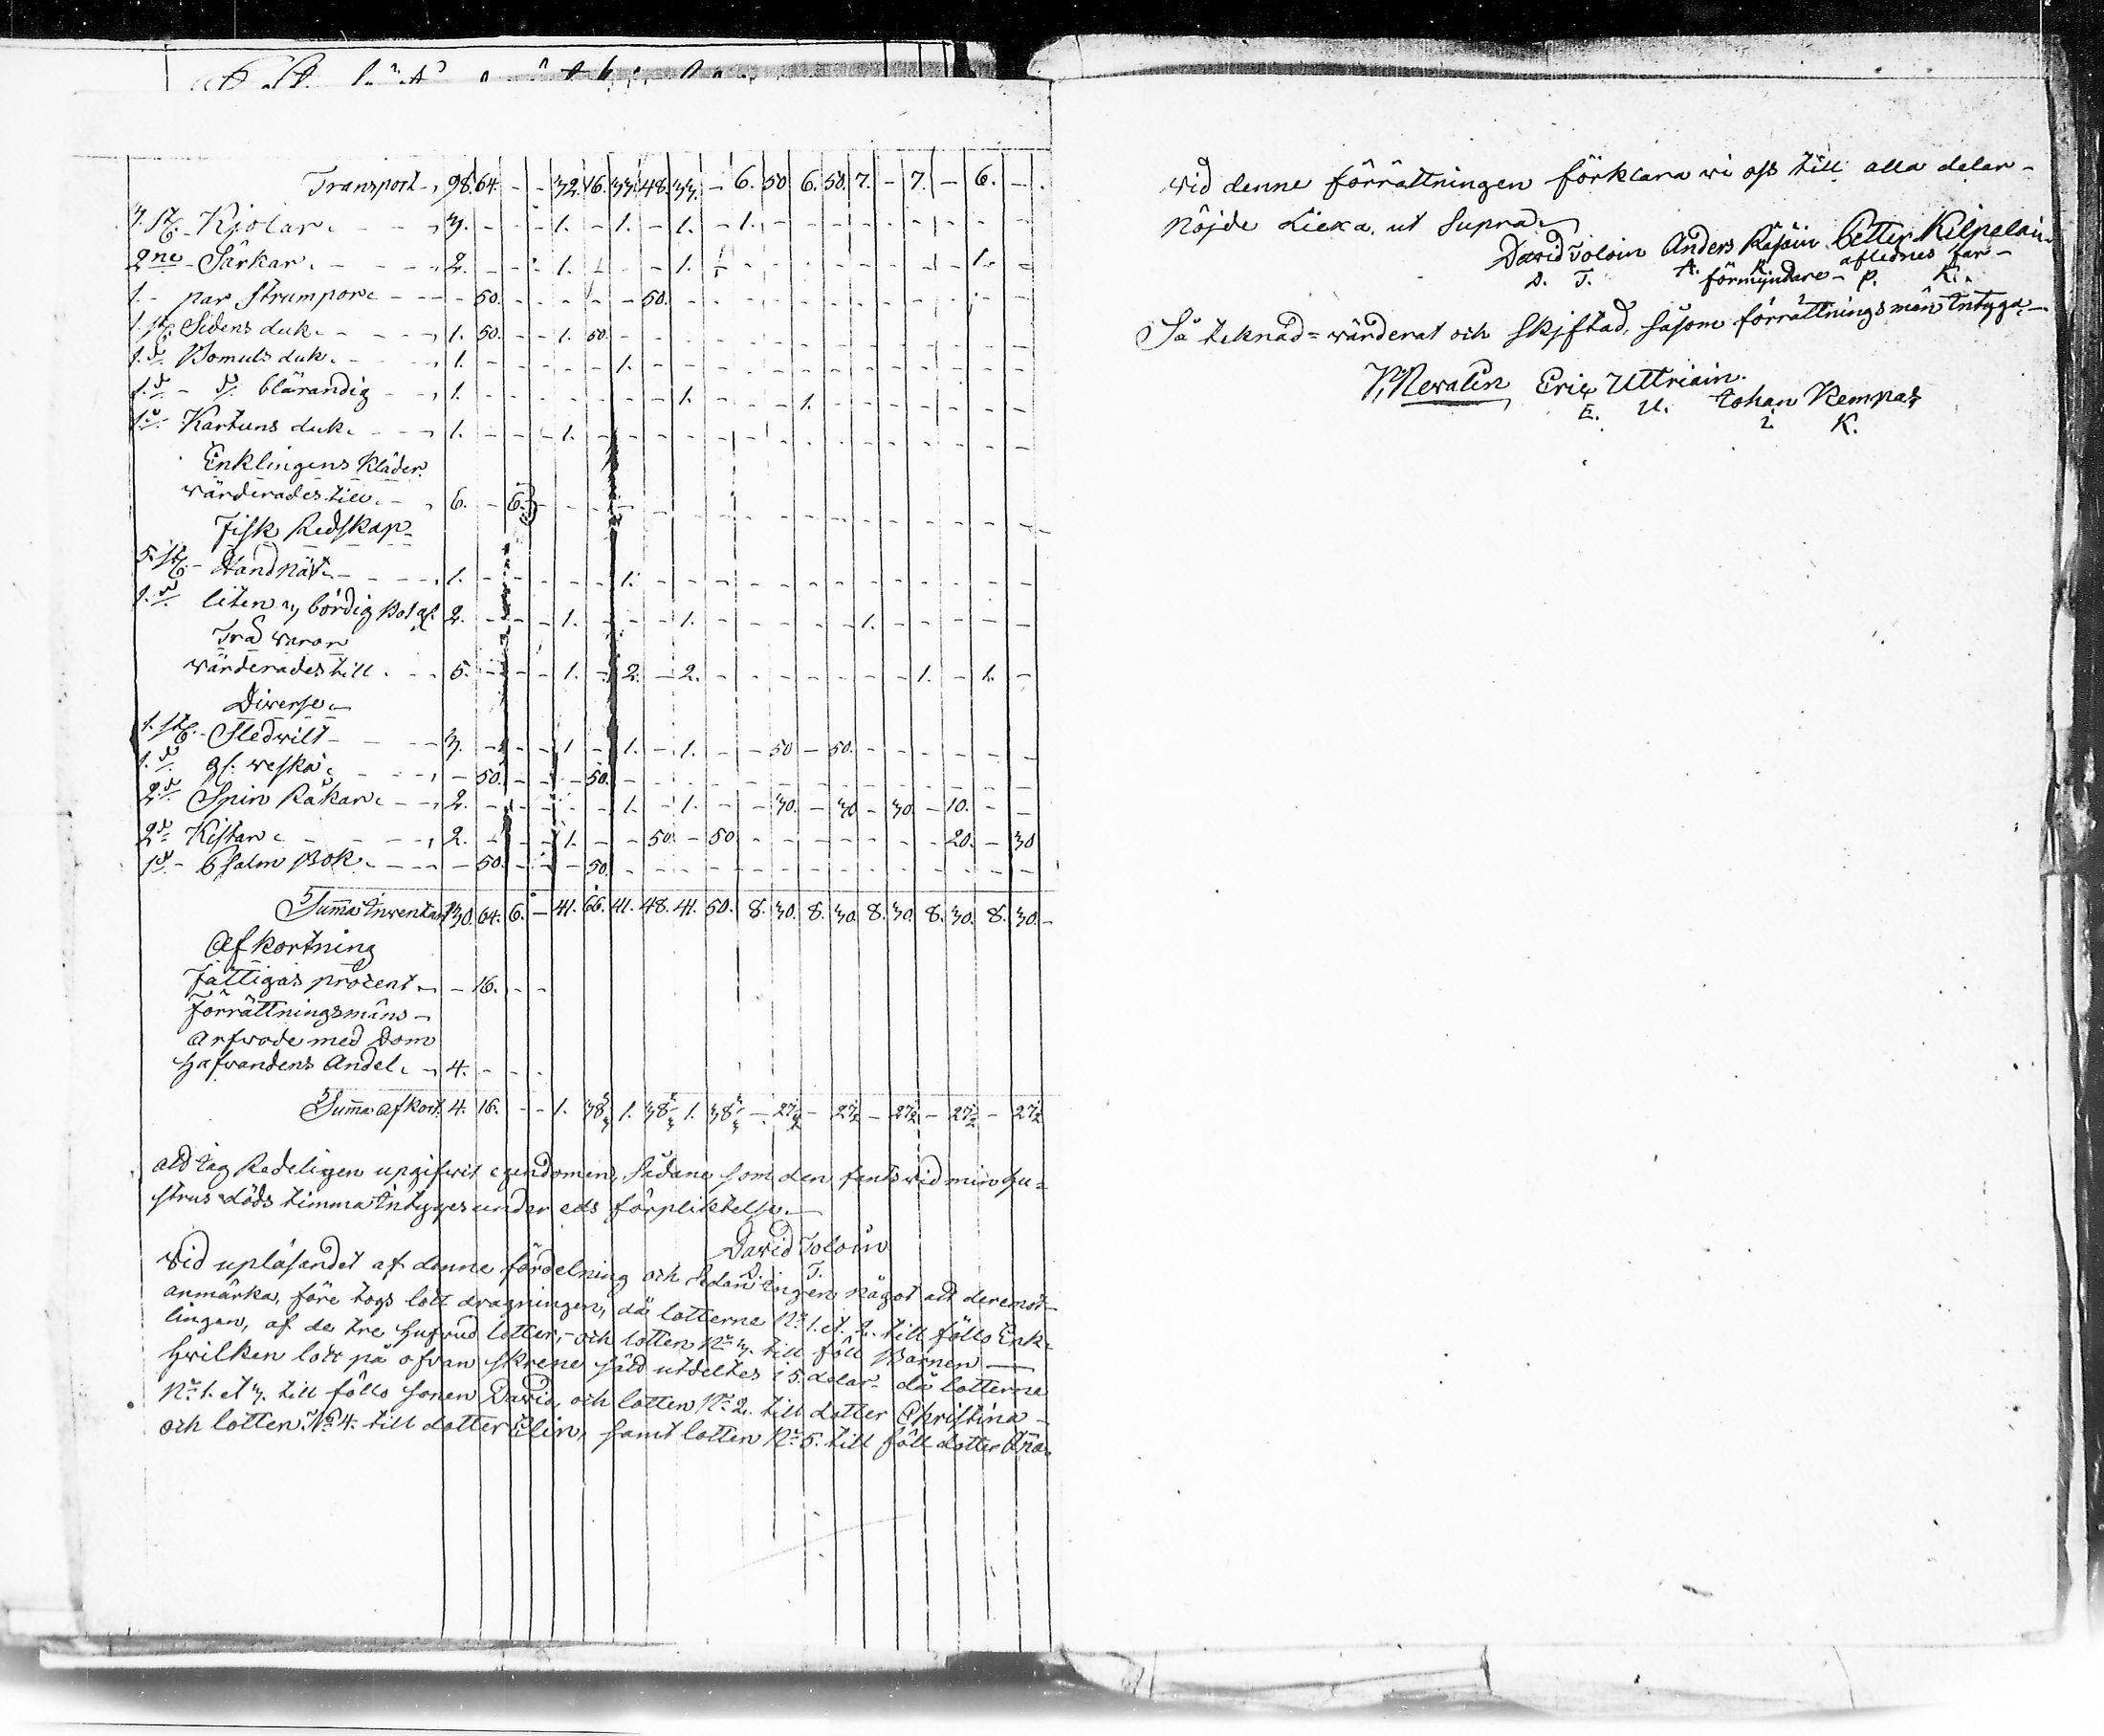 Transport 98. 64. - - 32. 16. 33. 48. 33. - 6. 50 6. 50. 7. - 7. - 6. -
3. st. Kjolar 3. - - - 1. - 1. - 1. - 1. - - - - - - - - -
2ne Särkar 2. - - - 1. - - - 1. - - - - - - - - - 1. -
1. par Strumpor - 50. - - - - - 50. - - - - - - - - - - - -
1. st. Sidens duk 1. 50. - - 1. 50. - - - - - - - - - - - - - -
1. d. Bomuls duk 1. - - - - - 1. - - - - - - - - - - - - -
1. d. - d. blårandig 1. - - - - - - - 1. - - - 1. - - - - - - -
1. d. Kartuns duk 1. - - - 1. - - - - - - - - - - - - - - -
Enklingens Kläder
wärderades till 6. - 6. - - - - - - - - - - - - - - - - -
Fisk Redskap
5. st. Handnät 1. - - - - - 1. - - - - - - - - - - - - -
1. d. liten 3 bördig Bot gl. 2. - - - 1. - - - 1. - - - - - 1. - - - - -
Träd waror
wärderades till 5. - - - 1. - 2. - 2. - - - - - - - 1. - 1. -
Diverse
1. st. Slédwilt 3. - - - 1 - 1. - 1. - - 50 - 50. - - - - - -
1. d. gl. weska - 50. - - - 50. - - - - - - - - - - - - - -
2. d. Spin Råkar 2. - - - - - 1. - 1. - - 30. - 30 - 30. - 10. - -
2d Kistar 2. - - - 1. - - 50. - 50 - - - - - - - 20. - 30
1d - Psalm Bok - 50. - - - 50. - - - - - - - - - - - - - -
Summa Inventar 130. 64. 6. - 41. 66. 41. 48. 41. 50. 8. 30. 8. 30. 8. 30. 8. 30. 8. 30.
Afkortning
Fattigas procent - 16. - -
Förrättningsmäns
arfwode med Dom
hafvandens Andel 4. - - -
Summa afkort. 4. 16. - - 1. 38 1. 38 1. 38 - 27½ - 27½ - 27½ - 27½ - 27½
att Jag Redeligen upgifwit egendomen, sådane som den fants wid min hu=
strus döds timma Intyges under eds förpliktelse.
David Toloin
D. T.
Wid upläsandet af denne fördelning och sedan ingen något att deremot
anmärka, före togs lott dragningen, då lotterne No 1. et. 2. till föllo Enk=
lingen, af de tre hufvud lotter, och lotten No 3. till föll Barnen
hwilken lott på ofvan skrene sätt utdeltes i 5. delar. då lotterne
No 1. et 3. till föllo sonen David, och lotten No 2. till dotter Christina
och lotten No 4. till dotter Elin, samt lotten No 5. till föll dotter Ana
wid denne förrättningen förklara wi oss till alla delar
Nöjde Liexa ut Supra
David Toloin Anders Räsäin Petter Kilpelain
D. T. A. R. förmyndare aflednes far P. K.
Så teknad= wärderat och Skjftad, såsom förrättnings män Intyga
P. Newalin Eric Uttriain. Johan Kempas
E. U. I. K.